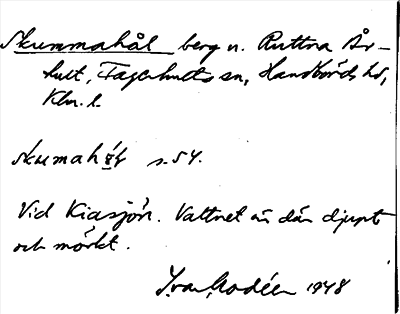 Skummahål berg n. Ruttna År-
hult, Fagerhults sn, Handbörds hd,
Klm. l.
skumahǻl s. 54.
Vid Kiasjön. Vattnet är där djupt
och mörkt.
Ivar Modéer 1948